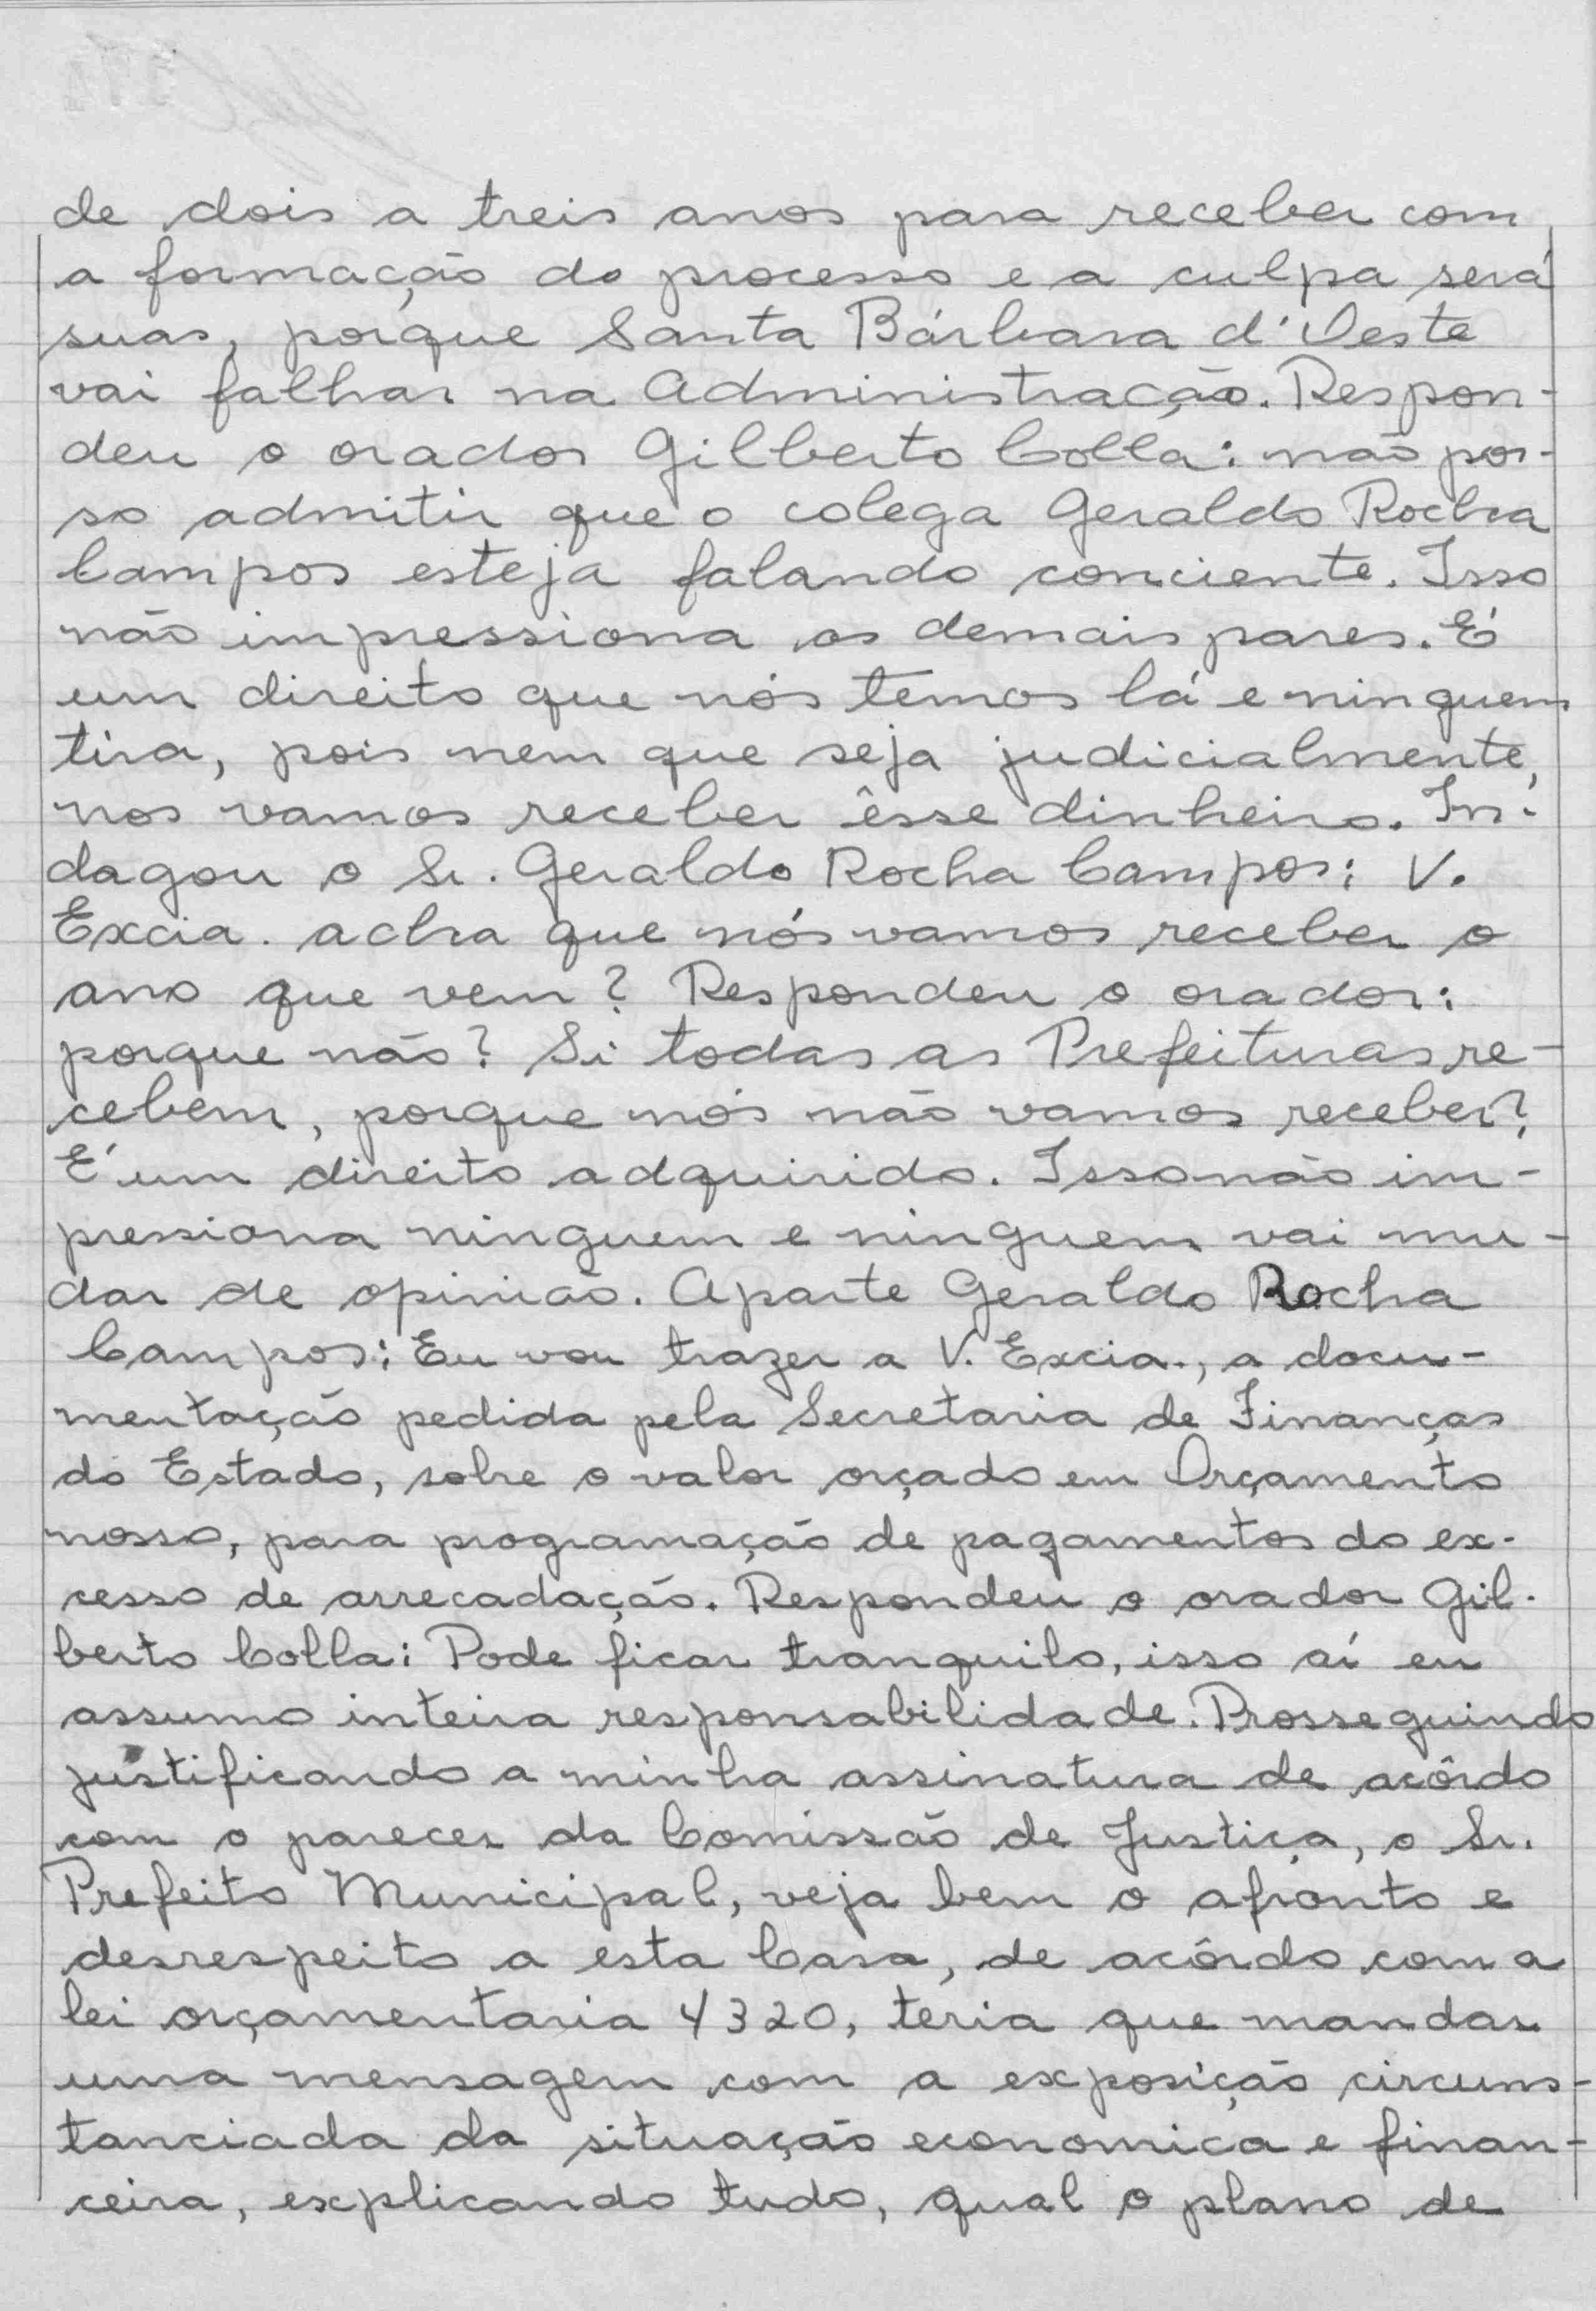 de dois a treis anos para receber com
a formação do processo e a culpa será
suas, porque Santa Bárbara d'Oeste
vai falhar na Administração. Respon-
deu o orador Gilberto Colla: não pos-
so admitir que o colega Geraldo Rocha
Campos esteja falando conciente. Isso
não impressiona os demais pares. É
um direito que nós temos lá e ninguem
tira, pois nem que seja judicialmente,
nos vamos receber êsse dinheiro. In-
dagou o Sr. Geraldo Rocha Campos: V.
Excia. acha que nós vamos receber o
ano que vem? Respondeu o orador:
porque não? Si todas as Prefeituras re-
cebem, porque nós não vamos receber?
É um direito adquirido. Isso não im-
pressiona ninguem e ninguem vai mu-
dar de opinião. Aparte Geraldo Rocha
Campos: Eu vou trazer a V. Excia., a docu-
mentação pedida pela Secretaria de Finanças
do Estado, sobre o valor orçado em Orçamento
nosso, para programação de pagamentos do ex-
cesso de arrecadação. Respondeu o orador Gil-
berto Colla: Pode ficar tranquilo, isso aí eu
assumo inteira responsabilidade. Prosseguindo
justificando a minha assinatura de acôrdo
com o parecer da Comissão de Justiça, o Sr.
Prefeito Municipal, veja bem o afronto e
desrespeito a esta Casa, de acôrdo com a
lei orçamentaria 4320, teria que mandar
uma mensagem com a exposição circuns-
tanciada da situação economica e finan-
ceira, explicando tudo, qual o plano de